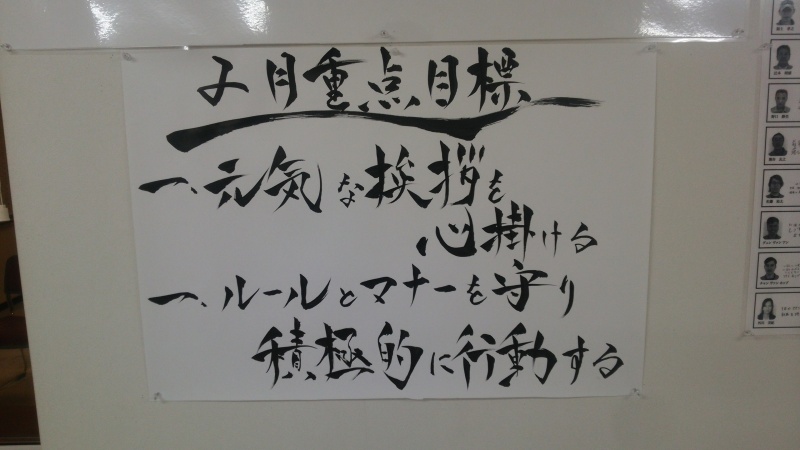 2月重点目標
一、元気な挨拶を
心掛ける
一、ルールとマナーを守り
積極的に行動する